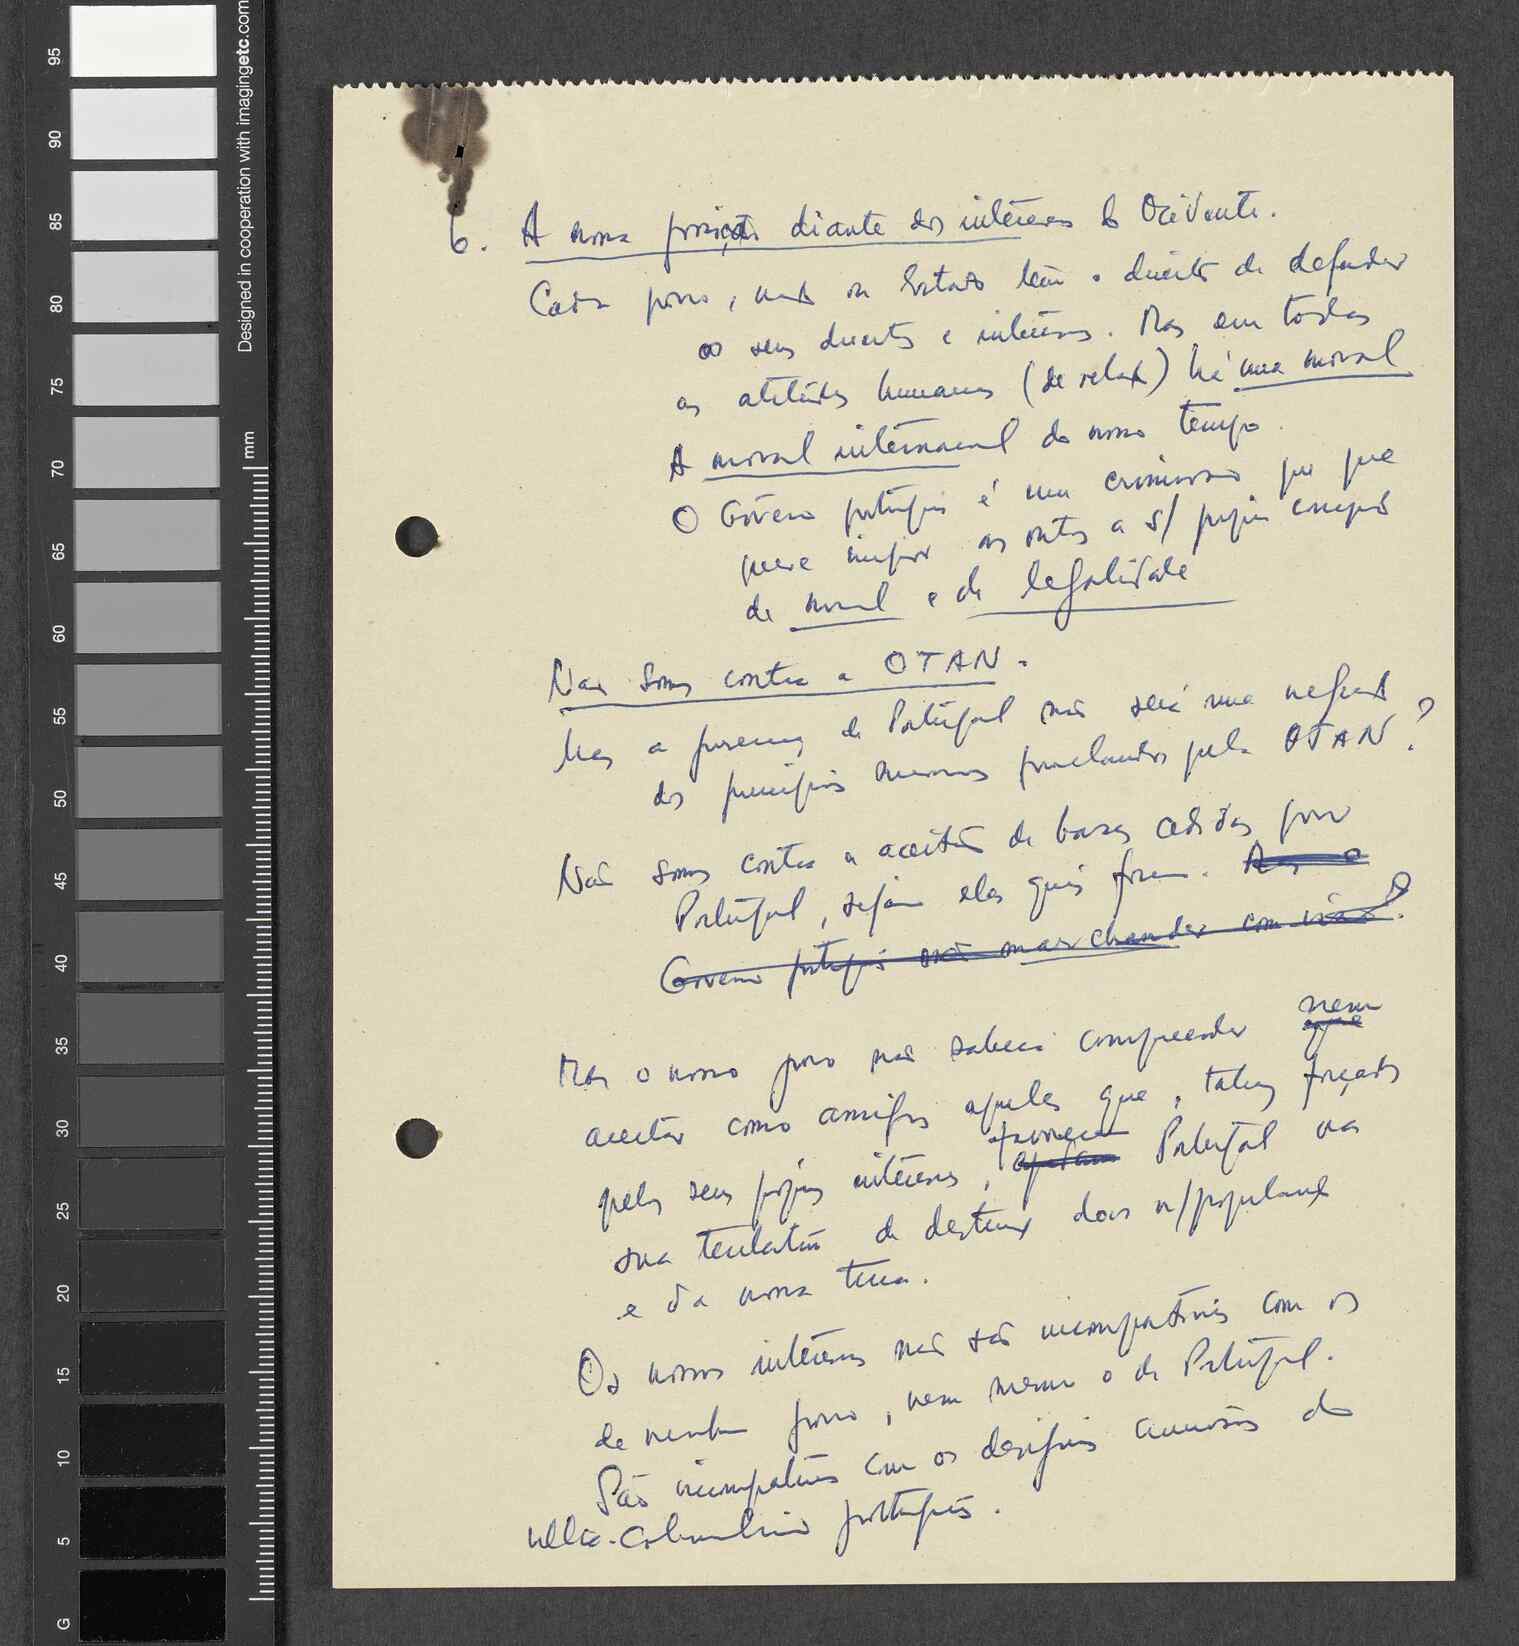 95
90
85
80
75
70
65
60
55
50
45
40
35
30
25
20
15
10
5
G
Designed in cooperation with imagingetc.com
mm
6. A nossa posição diante dos interesses do Ocidente.
Cada povo, cada Estado tem o direito de defender
os seus direitos e interesses. Mas em todas
as atitudes humanas (de relação) há uma moral
A moral internacional do nosso tempo.
O Govêrno português é um criminoso que
quere impor aos outros a s/ própria concepção
de moral e de legalidade
Não somos contra a OTAN.
Mas a presença de Portugal não será uma negação
dos princípios mesmos proclamados pela OTAN?
Não somos contra a aceitação de bases cedidas por
Portugal, sejam elas quais forem. Mas o
Governo português com
Mas o nosso povo não saberá compreender nem que
aceitar como amigos aqueles que, talvez forçados
pelos seus próprios interesses, favorecem apoiam Portugal na
sua tentativa de destruir das n/ populações
e da nossa terra.
Os nossos interesses não são incompatíveis com os
de nenhum povo, nem mesmo o de Portugal.
São incompatíveis com os desígnios criminosos do
ultra-colonialismo português.